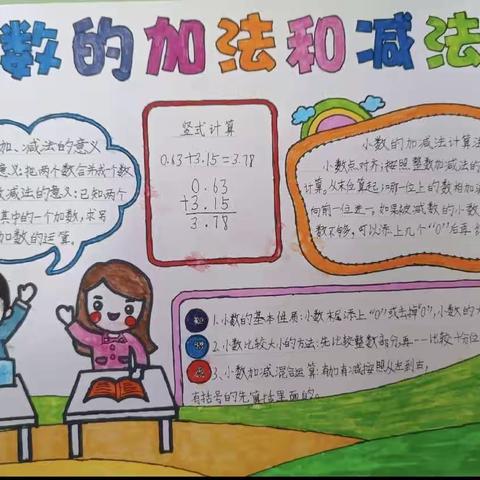 数的加法和减法
加、减法的意义
意义:把两个数合并成个数
减法的意义:已知两个
其中的一个加数,求另
加数的运算。
竖式计算
0.63+3.15=3.78
0.63
+3.15
3.78
小数的加减法计算法
小数点对齐;按照整数加减法的
计算。从末位算起;哪一位上的数相加
向前一位进一。如果被减数的小数
数不够,可以添上几个“0”后再
1.小数的基本性质:小数末尾添上“0”或去掉“0”,小数的大
2.小数比较大小的方法:先比较整数部分,再---比较十分位
3、小数加减混合运算:有加有减按照从左到右,
有括号的先算括里面的。